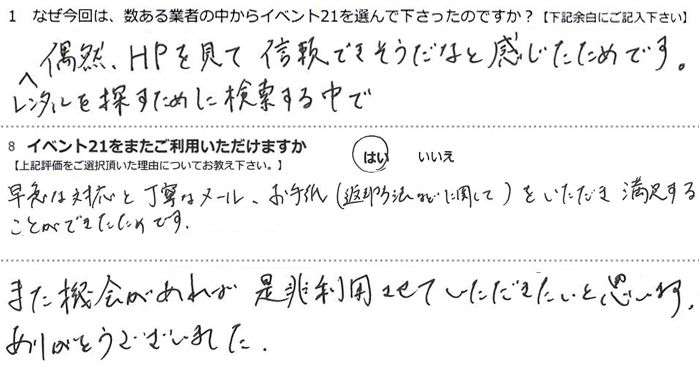 1 なぜ今回は、数ある業者の中からイベント21を選んで下さったのですか？【下記余白にご記入下さい】
偶然、HPを見て 信頼できそうだなと感じたためです。
レンタルを探すために検索する中で
8 イベント21をまたご利用いただけますか
【上記評価をご選択頂いた理由についてお教え下さい。】
はい いいえ
早急な対応と丁寧なメール、お手紙(返却方法などに関して)をいただき 満足する
ことができたためです。
また機会があれば 是非利用させていただきたいと思います。
ありがとうございました.